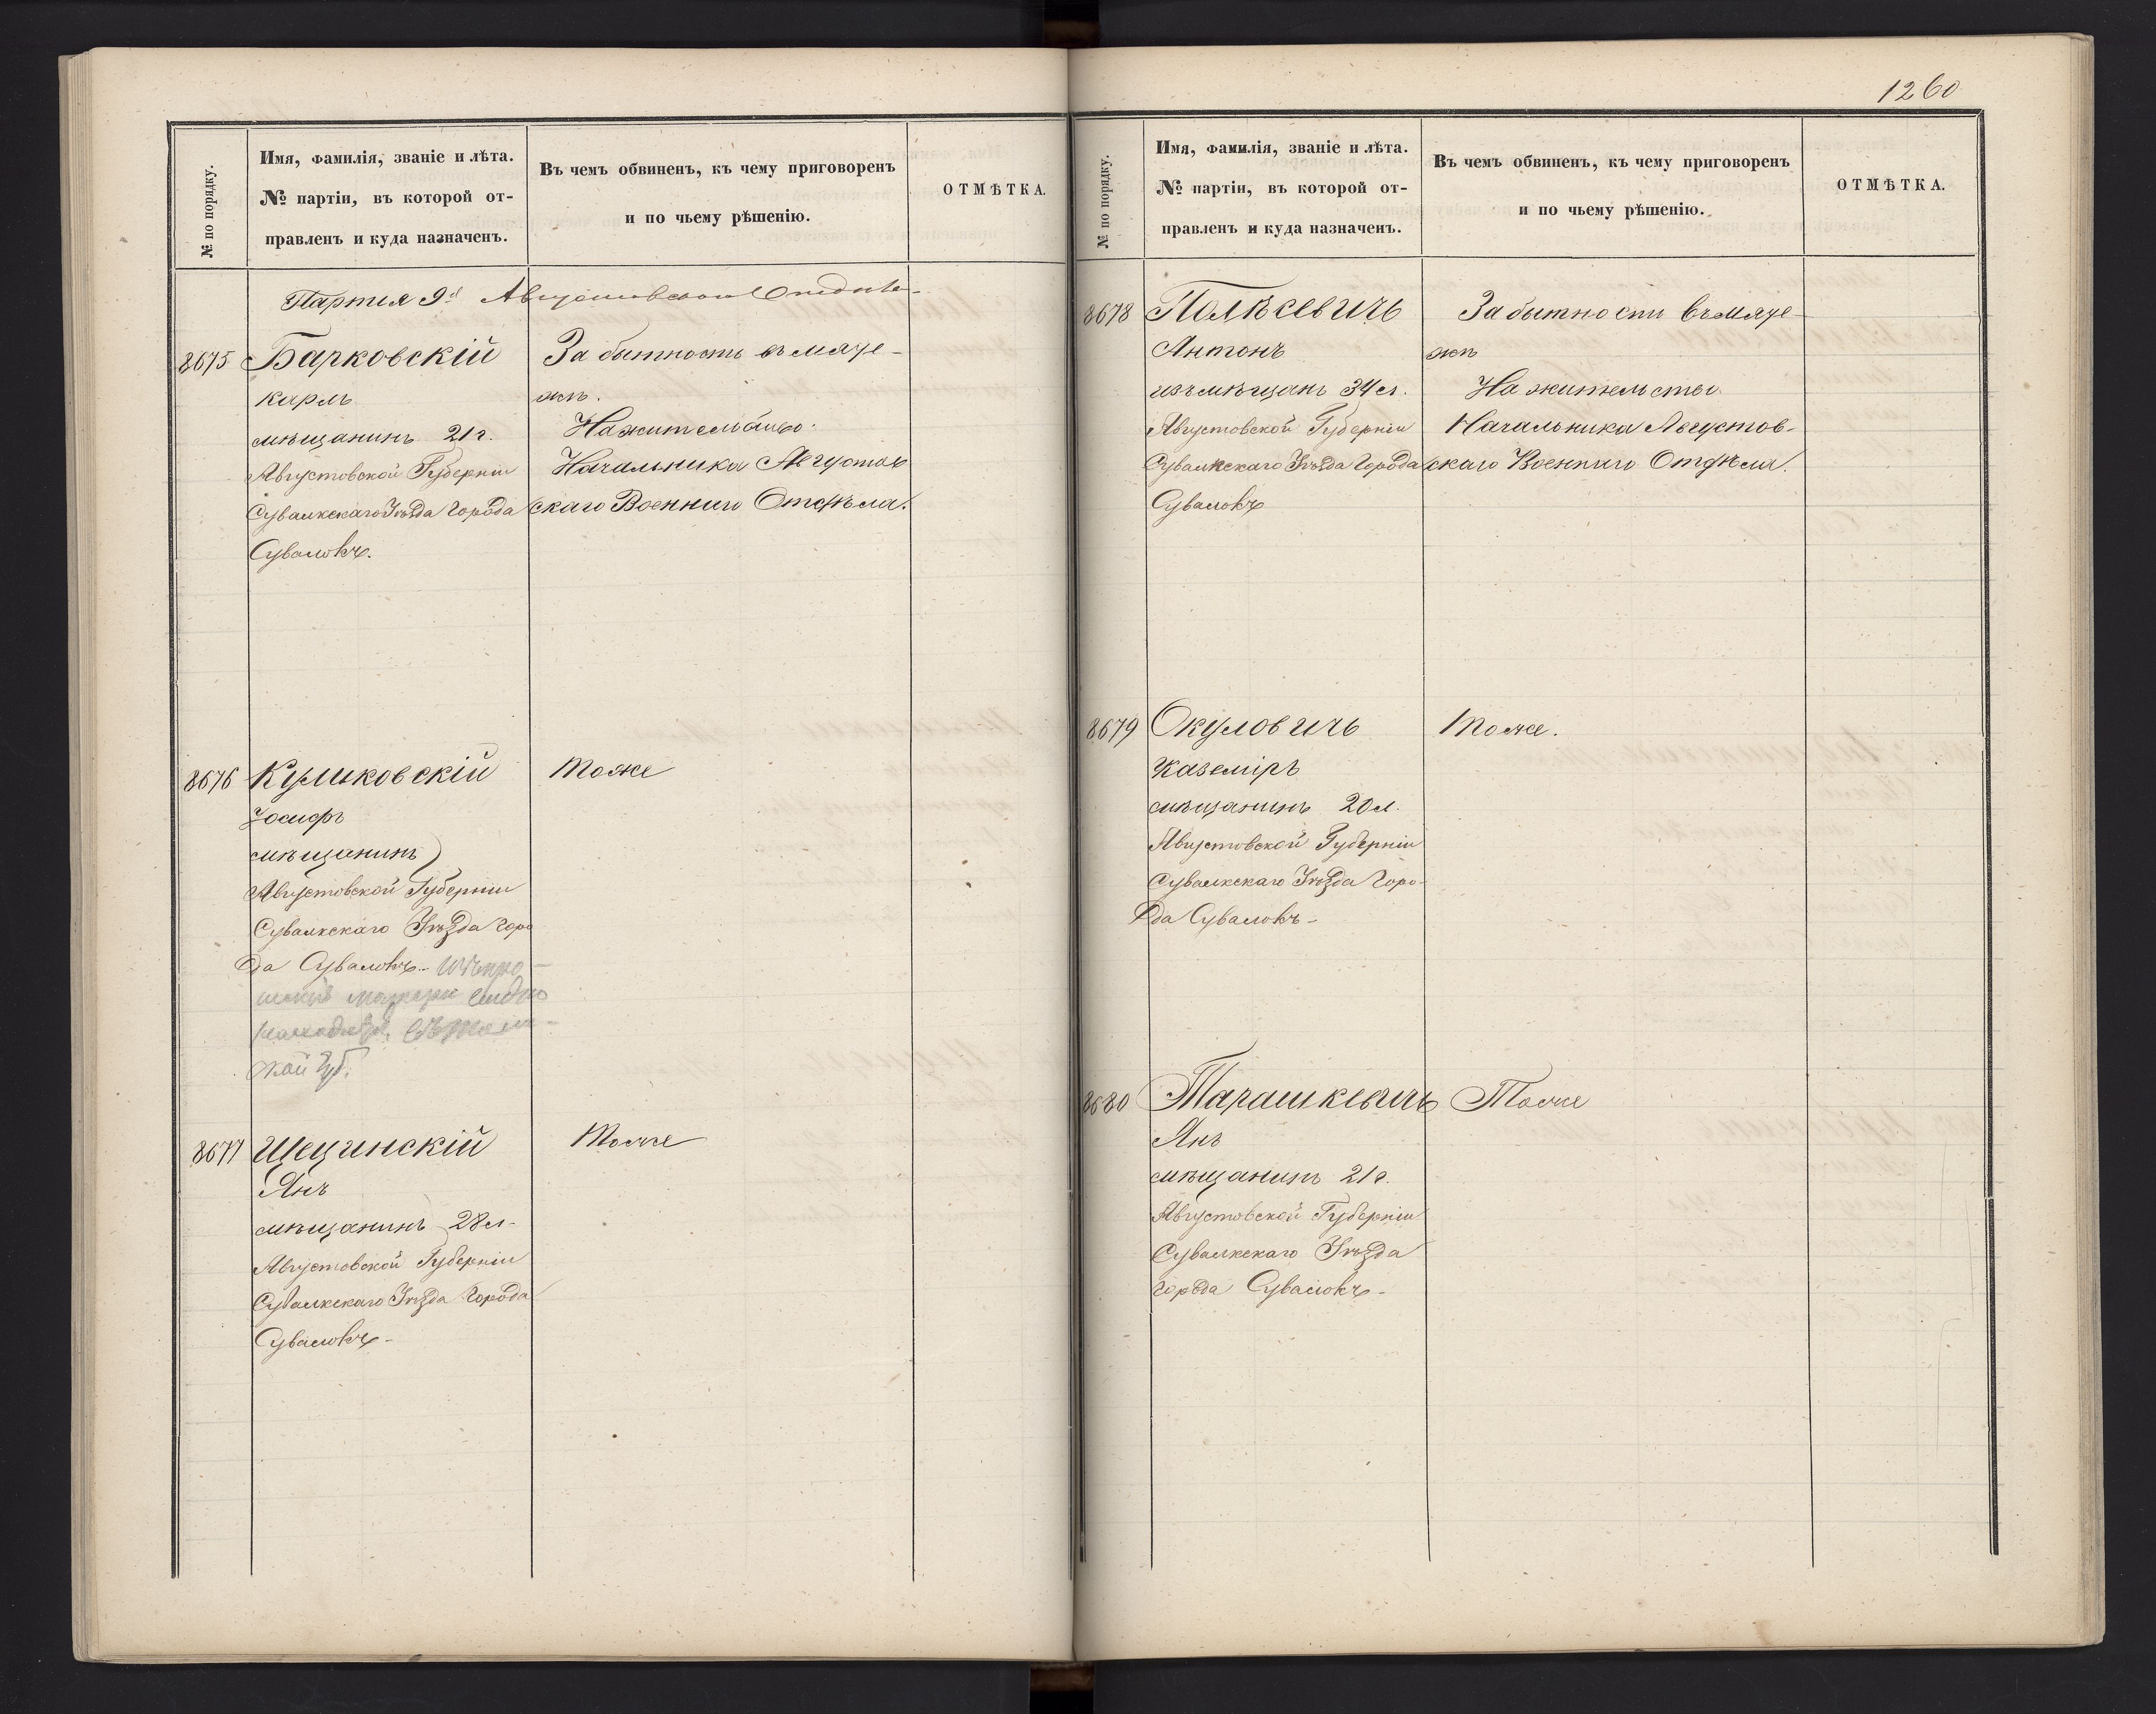 № по порядку.
Имя, фамилія, званіе и лѣта.
№ партіи, въ которой от-
правленъ и куда назначенъ.
Въ чемъ обвиненъ, къ чему приговоренъ
и по чьему рѣшенію.
ОТМѢТКА.
Партия 9я Августовскаго
8675
Барковскій
Карлъ
мѣщанинъ 21 г.
Августовской Губерніи
Сувалкскаго Уѣзда города
Сувалокъ.
За бытность въ мяте-
жѣ.
На жительство.
Начальника Августов
скаго Военнаго Отдѣла.
8676
Куликовскій
Іосифъ
мѣщанинъ
Августовской Губерніи
Сувалкскаго Уѣзда горо
да Сувалокъ
ской губ.
Тоже
8677
Щецинскій
Янъ
мѣщанинъ 28 л.
Августовской Губерніи
Сувалкскаго Уѣзда города
Сувалокъ
Тоже
1260
№ по порядку.
Имя, фамилія, званіе и лѣта.
№ партіи, въ которой от-
правленъ и куда назначенъ.
Въ чемъ обвиненъ, къ чему приговоренъ
и по чьему рѣшенію.
ОТМѢТКА.
8678
Полѣсевичъ
Антонъ
изъ мѣщанъ 34 л.
Августовской Губерніи
Сувалкскаго Уѣзда города
Сувалокъ
За бытности въ мяте-
жѣ
На жительство
Начальника Августов-
скаго Военнаго Отдѣла.
8679
Окуловичъ
Каземіръ
мѣщанинъ 20 л.
Августовской Губерніи
Сувалкскаго Уѣзда горо-
да Сувалокъ
Тоже.
8680
Тарашкевичъ
Янъ
мѣщанинъ 21 г.
Августовской Губерніи
Сувалкскаго Уѣзда
города Сувалокъ
Тоже